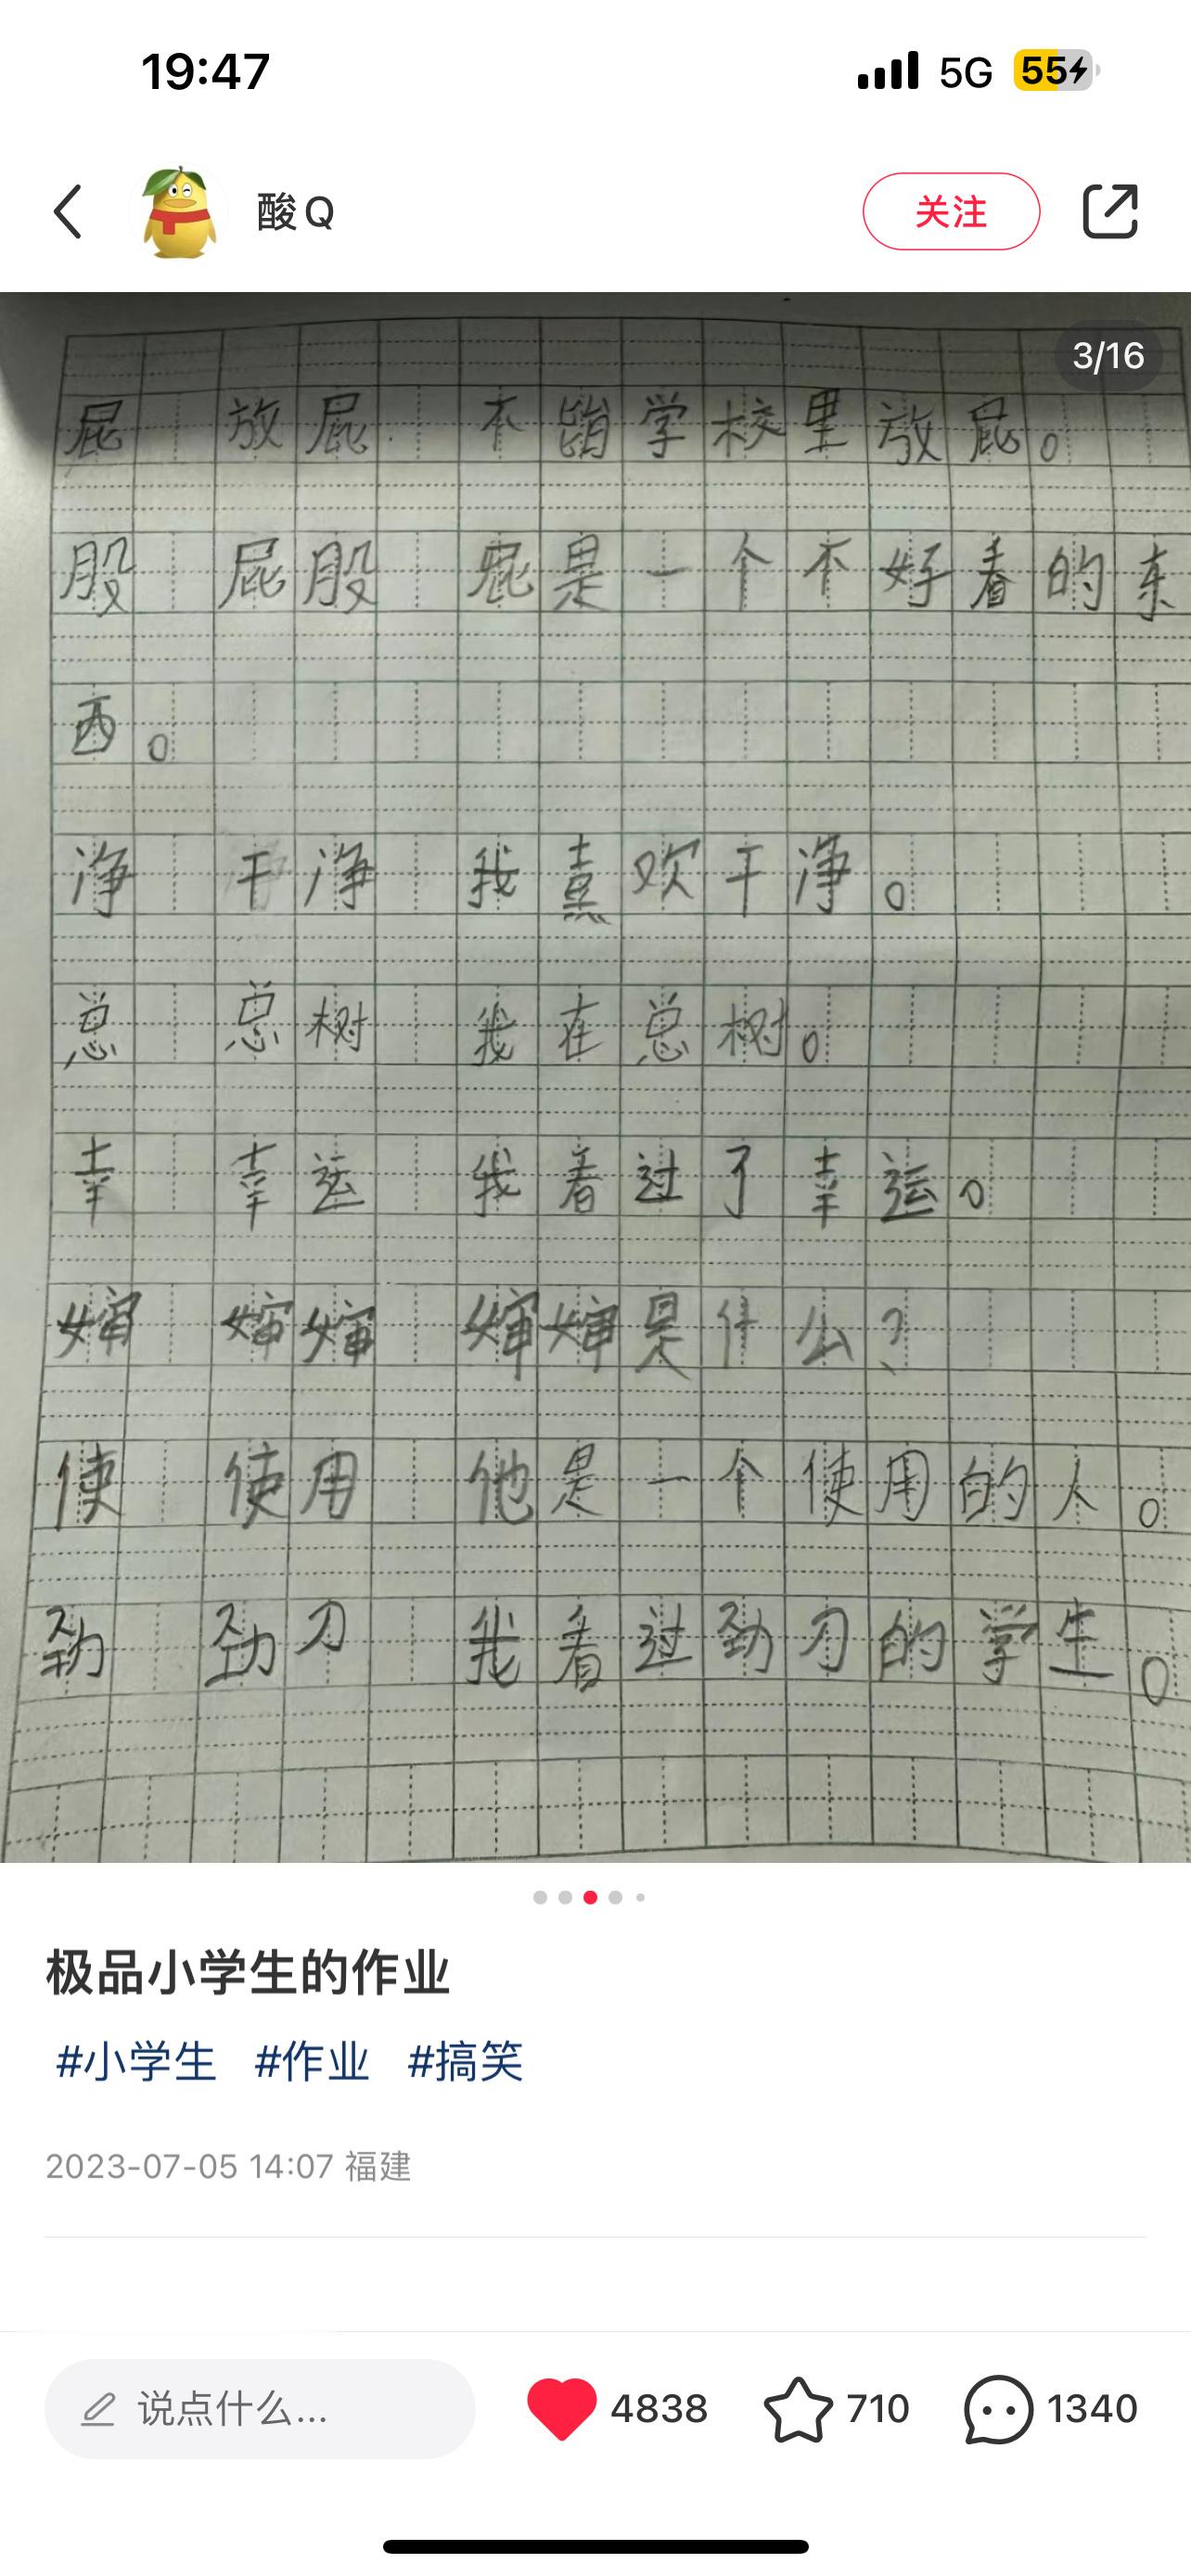 19:47 5G 55
酸Q 关注
3/16
屁 放屁 不能学校里放屁。
股 屁股 屁是一个不好看的东
西。
净 干净 我喜欢干净。
总 总树 我在总树。
幸 幸运 我看过了幸运。
婶 婶婶 婶婶是什么?
使 使用 他是一个使用的人。
劲 劲刀 我看过劲刀的学生。
极品小学生的作业
#小学生 #作业 #搞笑
2023-07-05 14:07 福建
说点什么... 4838 710 1340